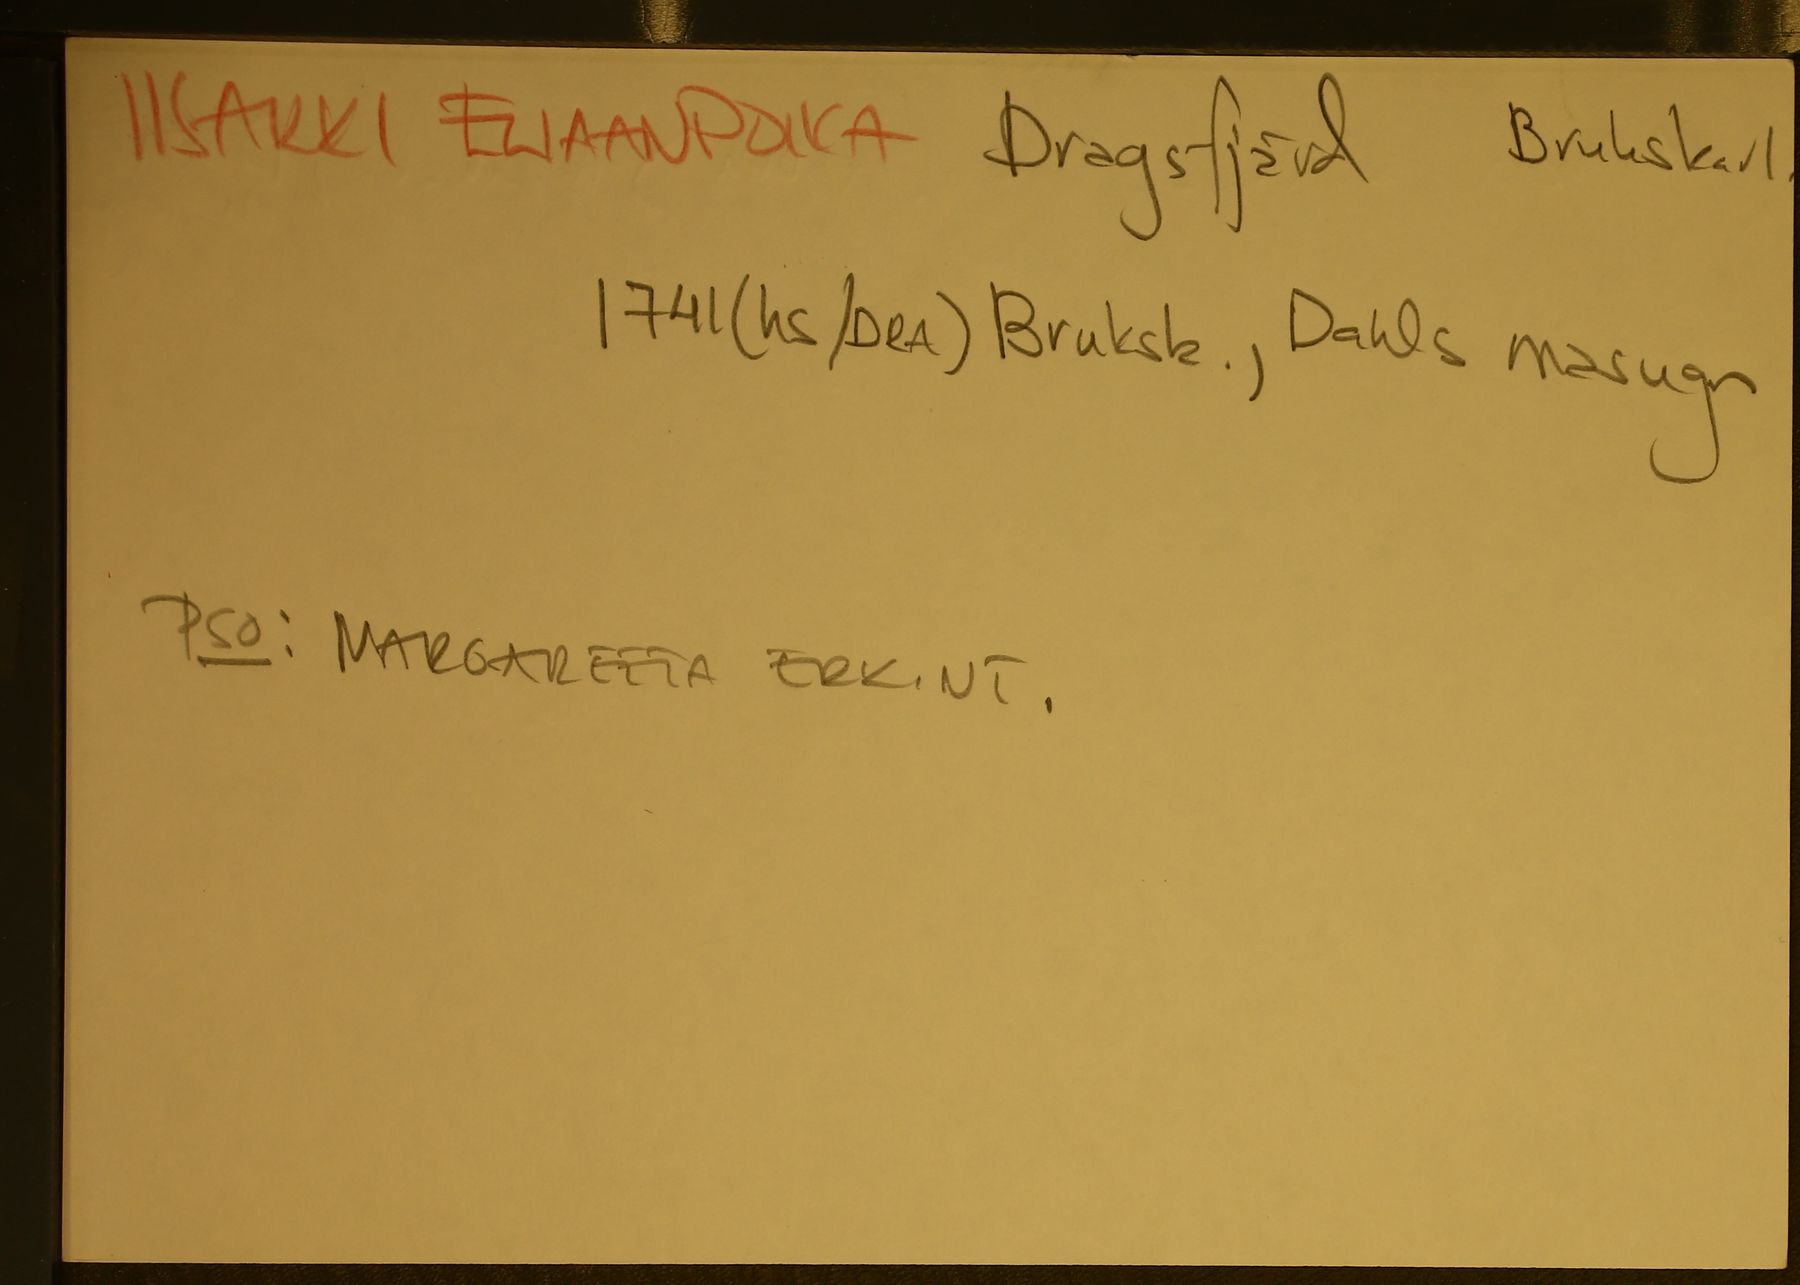 IISAKKI ELIAANPOIKA Dragsfjärd Brukskarl.
1741 (hs/DRA) Bruksk., Dahls masugn
PSO: MARGAREETA ERK.NT.